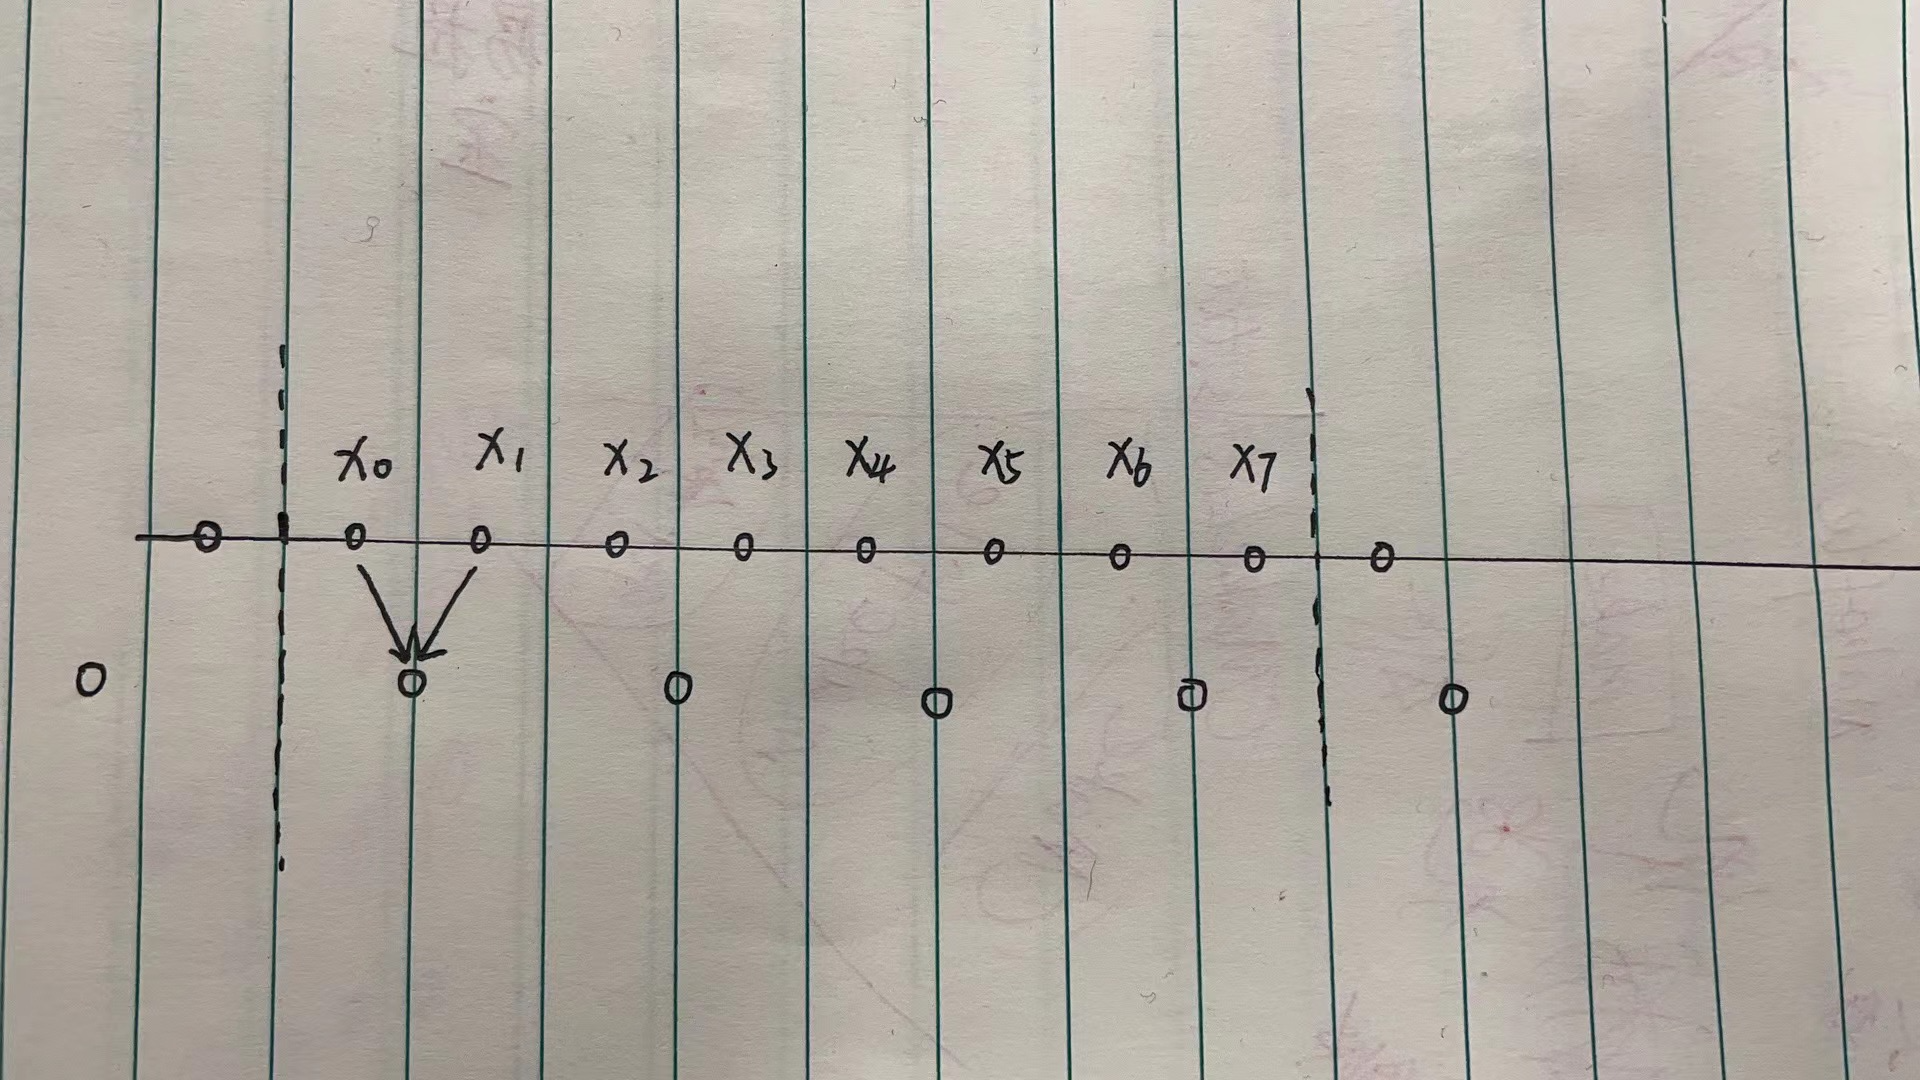 x₀ x₁ x₂ x₃ x₄ x₅ x₆ x₇